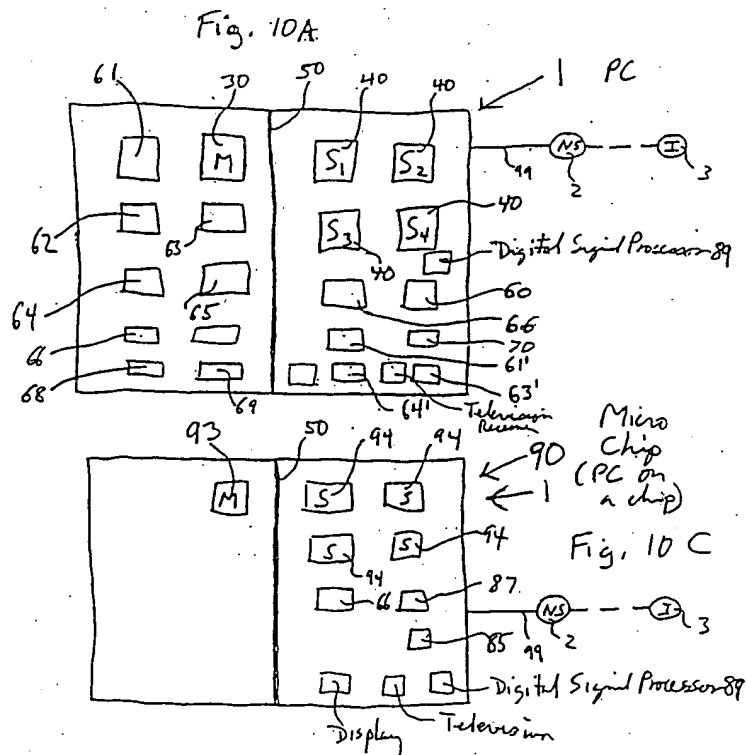 Fig. 10A
61 30 50 40 40 1 PC
M S1 S2 NS I
99 2 3
62 63 S3 S4 40
40 Digital Signal Processor 89
64 65 60
66
66 70
61'
68 69 64' 63'
Television
Receiver
93 50 94 94 90 Micro
Chip
(PC on
a chip)
1
M S S
S S 94
94 Fig. 10C
66 87 NS I
85 99 2 3
Digital Signal Processor 89
Display Television